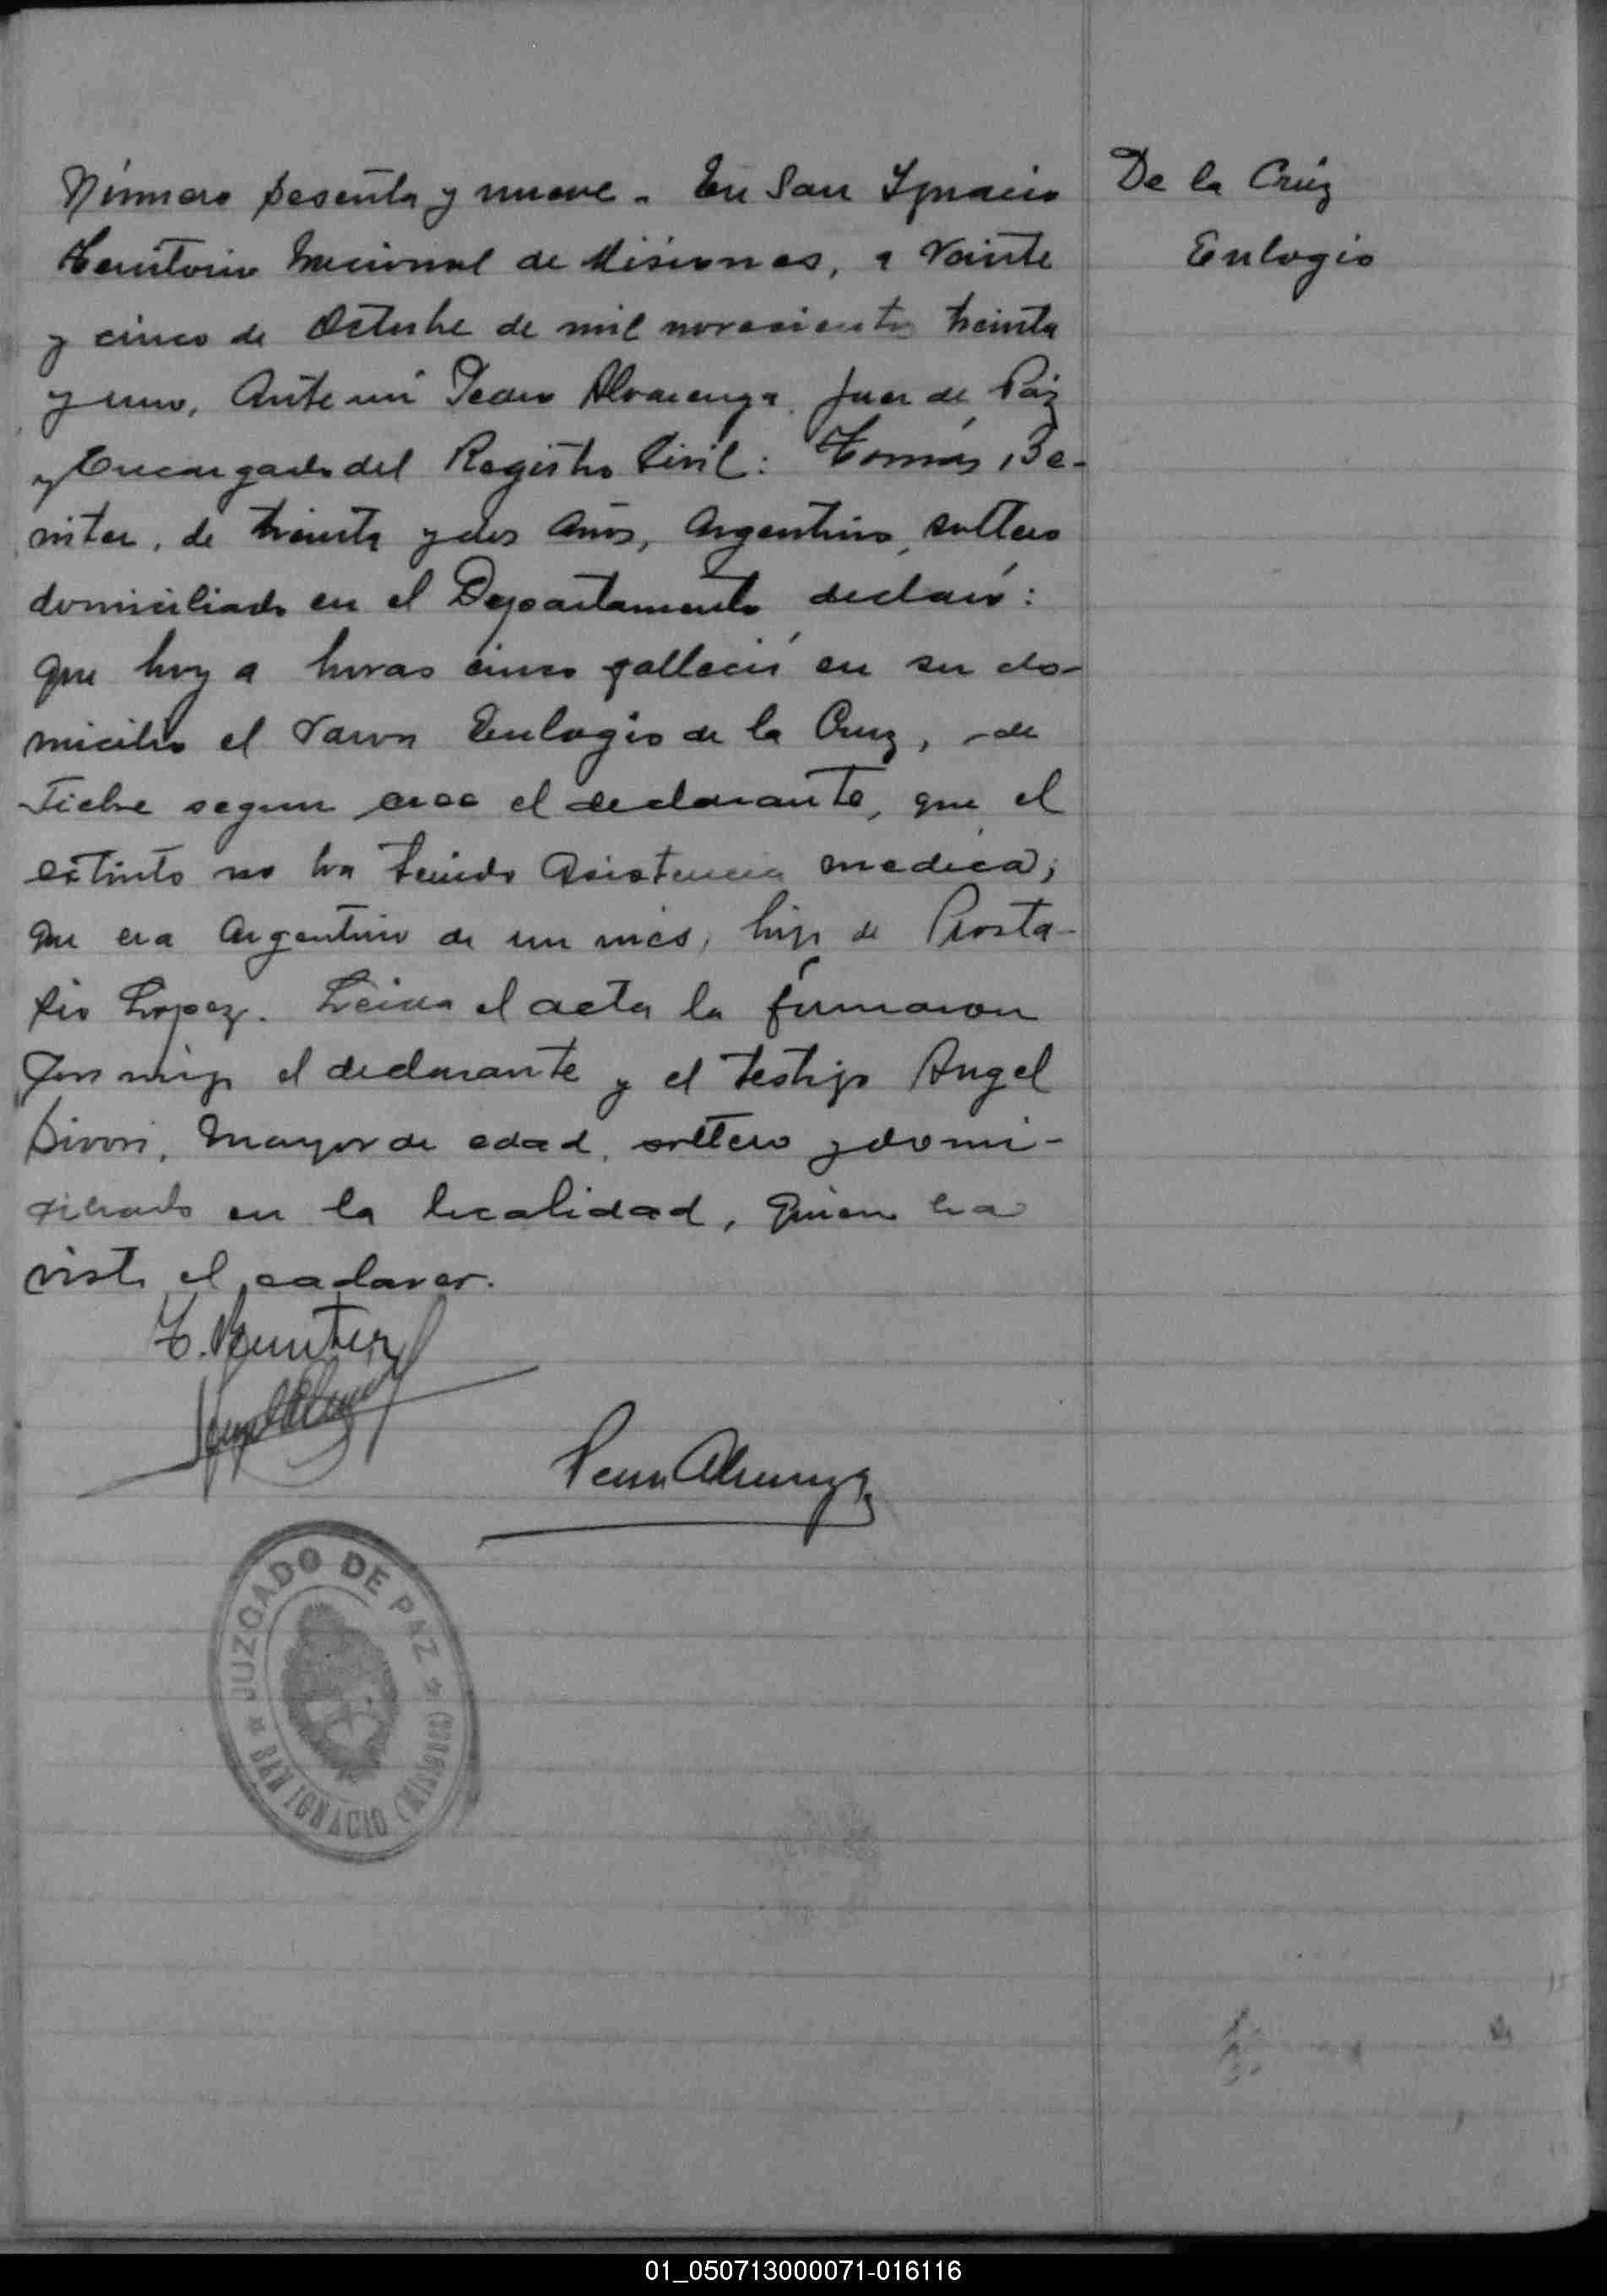 Número sesenta y nueve. En San Ignacio
De la Crúz
Eulogio
Territorio Nacional de Misiones, a veinte
y cinco de Octubre de mil novecientos treinta
y uno, Ante mi Pedro Alvarenga, Juez de Páz
y Encargado del Registro Civil: Tomás Be-
niter, de treinta y dos años, Argentino, soltero
domiciliado en el Departamento declaró:
que hoy a horas cinco falleció en su do-
micilio el varon Eulogio de la Cruz, de
fiebre segun cree el declarante, que el
extinto no ha tenido asistencia medica;
que era Argentino de un mes, hijo de
Lopez. Leida el acta la firmaron
conmigo el declarante y el testigo Angel
mayor de edad, soltero y domi-
ciliado en la localidad, quien ha
visto el cadaver.
T. Beniter
Pedro Alvarenga
JUZGADO DE PAZ
SAN IGNACIO (MISIONES)
01_050713000071-016116